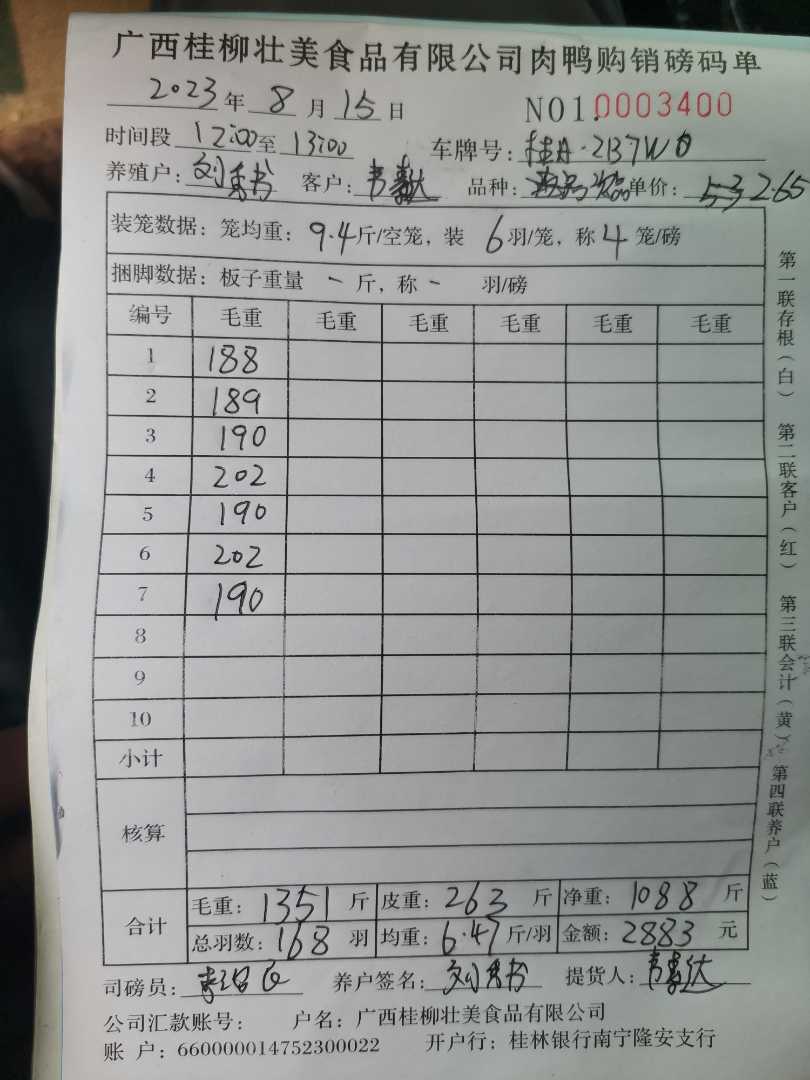 广西桂柳壮美食品有限公司肉鸭购销磅码单
2023年 8 月 15 日 NO1.0003400
时间段 12:00至 13:00 车牌号: 桂A·2B7W0
养殖户: 刘秀书 客户: 韦 达 品种: 单价: 2.65
装笼数据: 笼均重: 9.4斤/空笼, 装 6羽/笼, 称 4 笼/磅
捆脚数据: 板子重量 一 斤, 称 一 羽/磅
编号 毛重 毛重 毛重 毛重 毛重 毛重
1 188
2 189
3 190
4 202
5 190
6 202
7 190
8
9
10
小计
核算
合计 毛重: 1351 斤 皮重: 263 斤 净重: 1088 斤
总羽数: 168 羽 均重: 6.47斤/羽 金额: 2883 元
司磅员: 养户签名: 刘秀书 提货人: 韦 达
公司汇款账号: 户名: 广西桂柳壮美食品有限公司
账 户: 660000014752300022 开户行: 桂林银行南宁隆安支行
第一联存根(白) 第二联客户(红) 第三联会计(黄) 第四联养户(蓝)